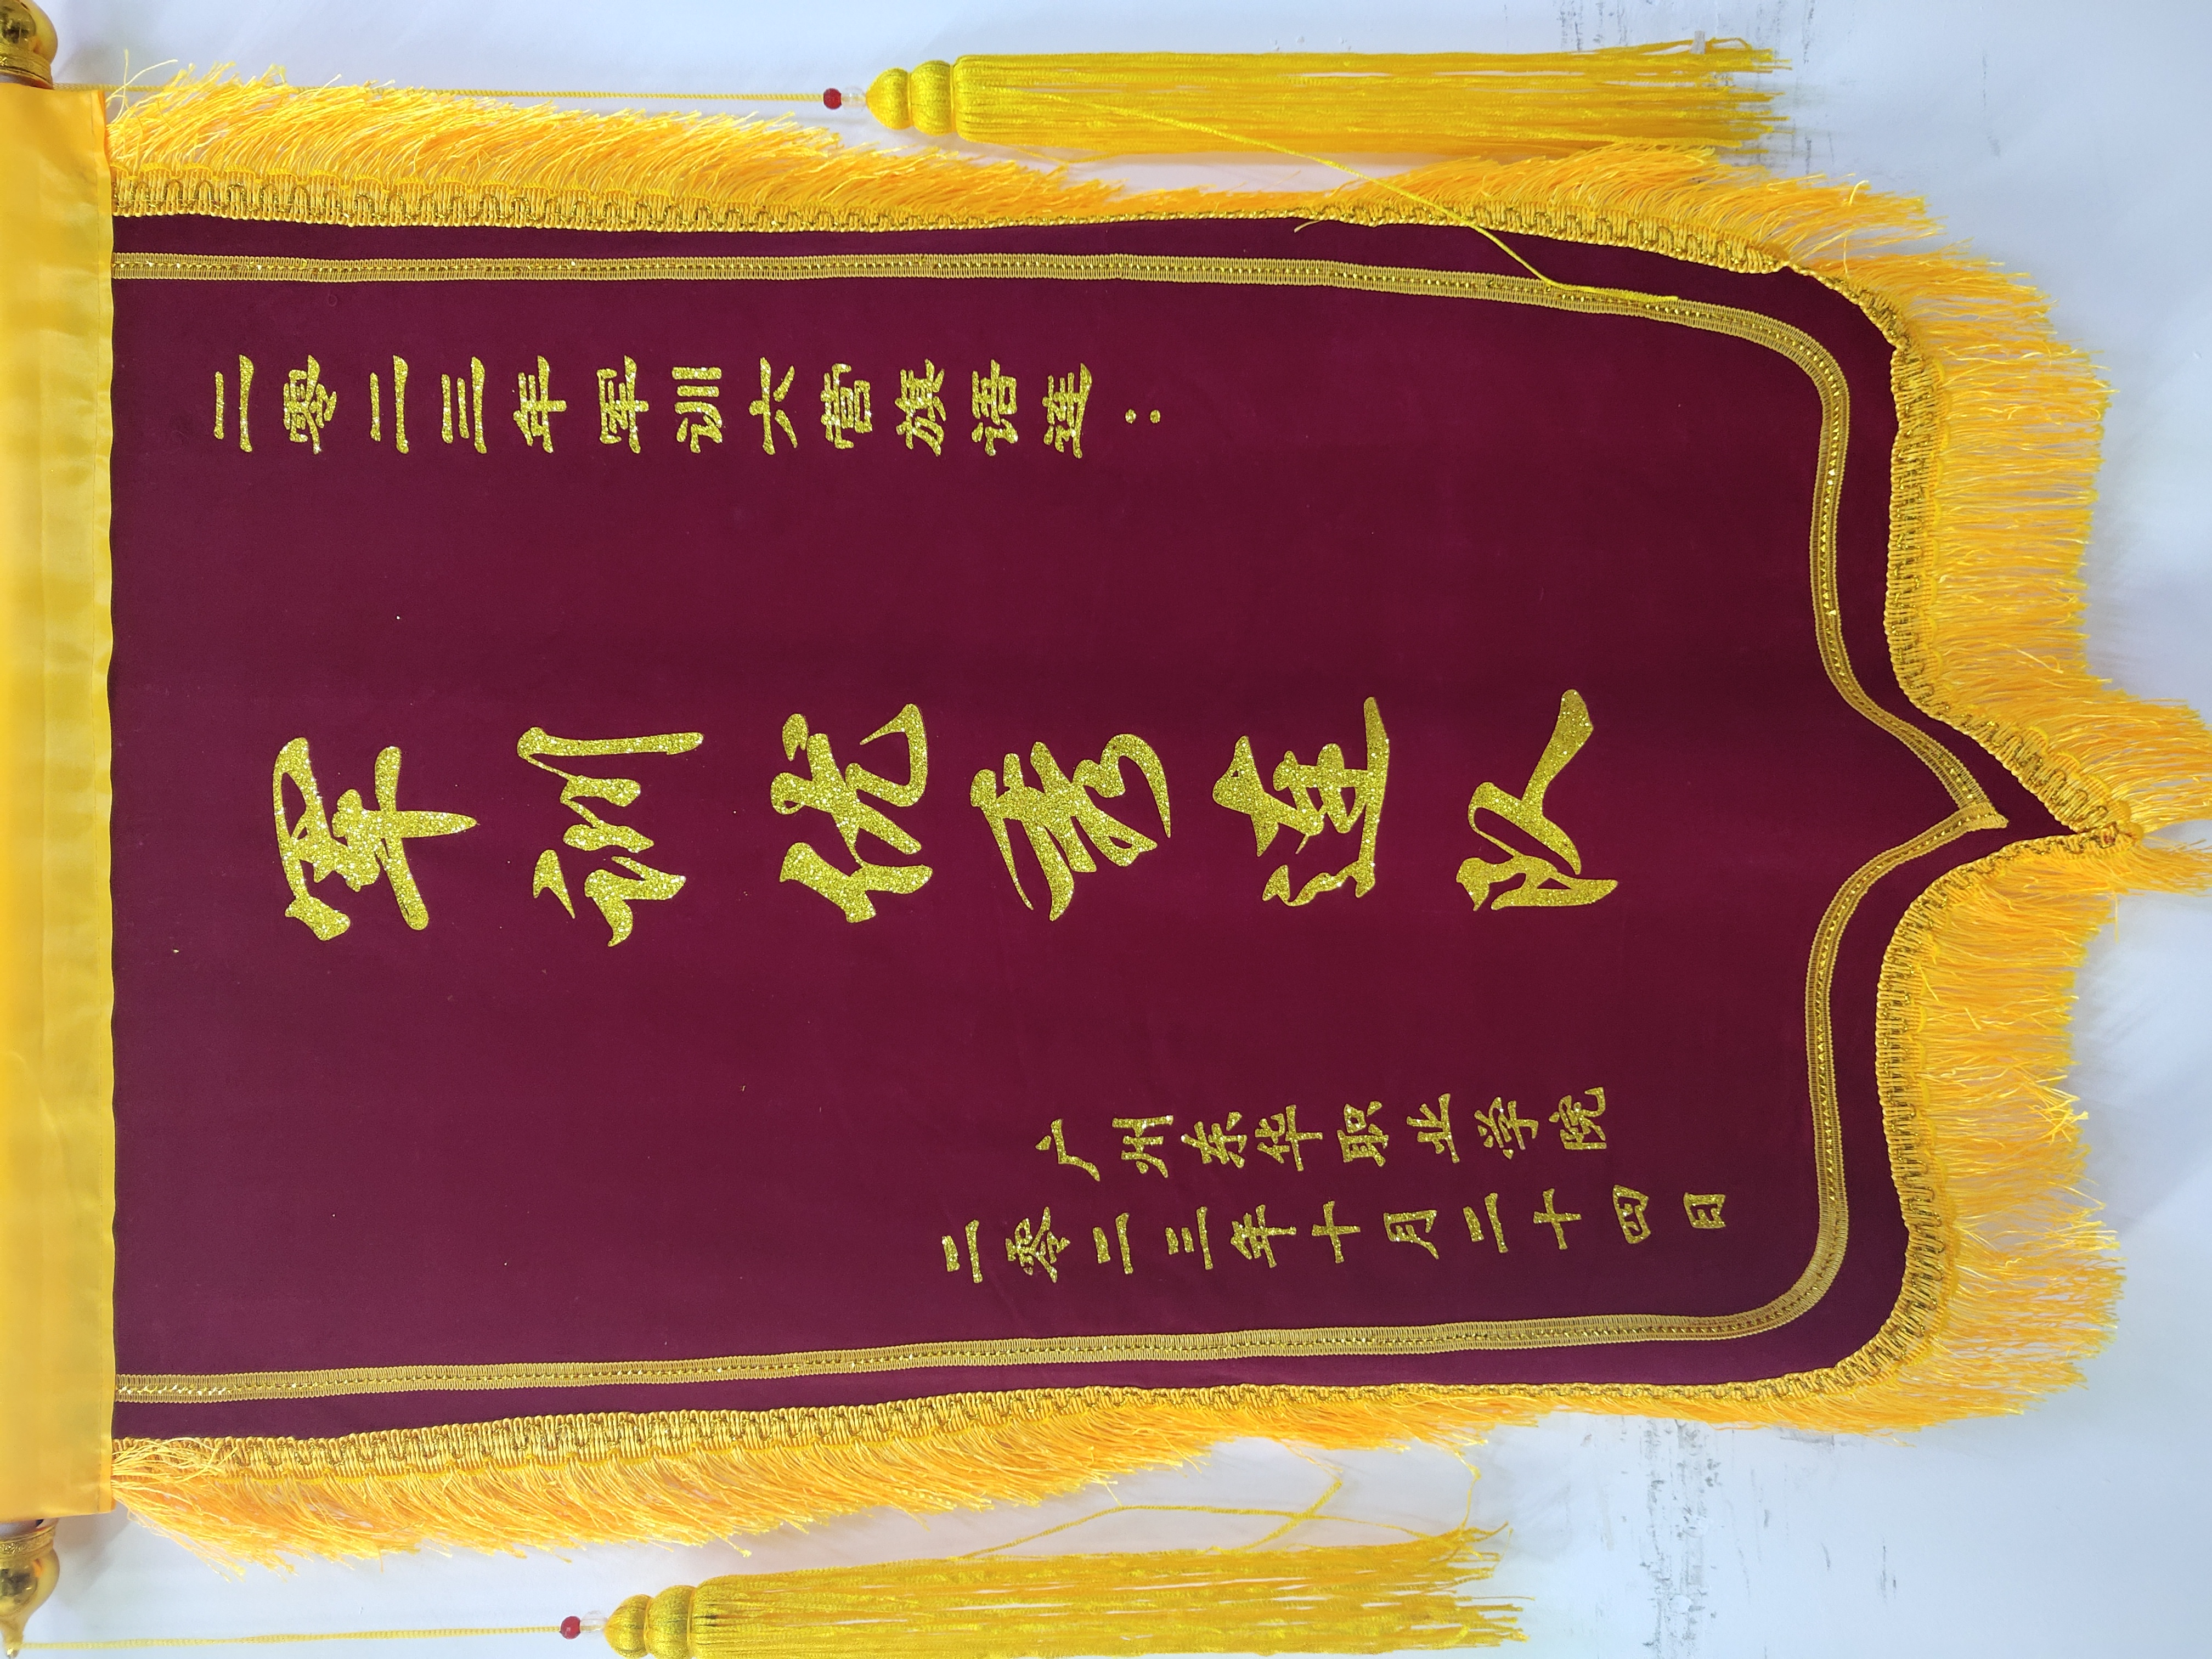 二零二三年军训六营旗语连：
军训优秀连队
广州东华职业学院
二零二三年十月二十四日